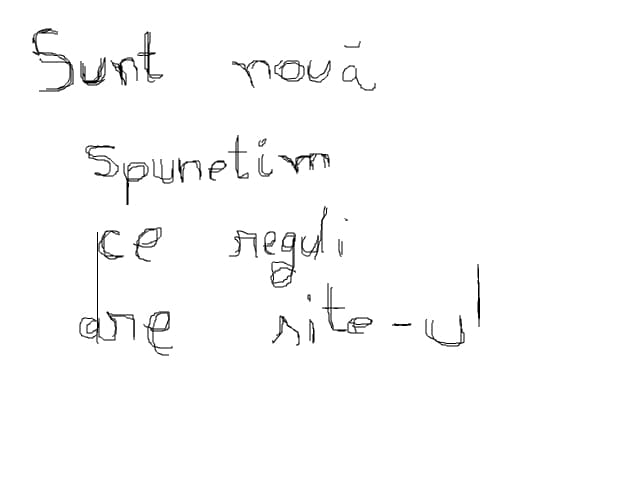 Sunt nouă
Spunetim
ce reguli
are site-ul